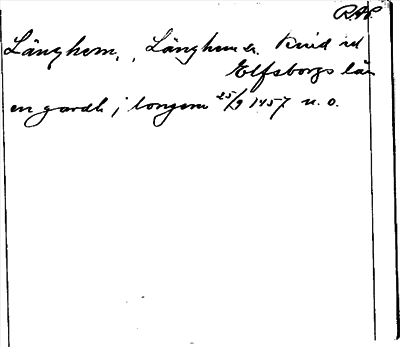 R.A.P.
Länghem, Länghem s. Kind hd
Elfsborgs län
en gardh j longem 25/9 1457 u. o.